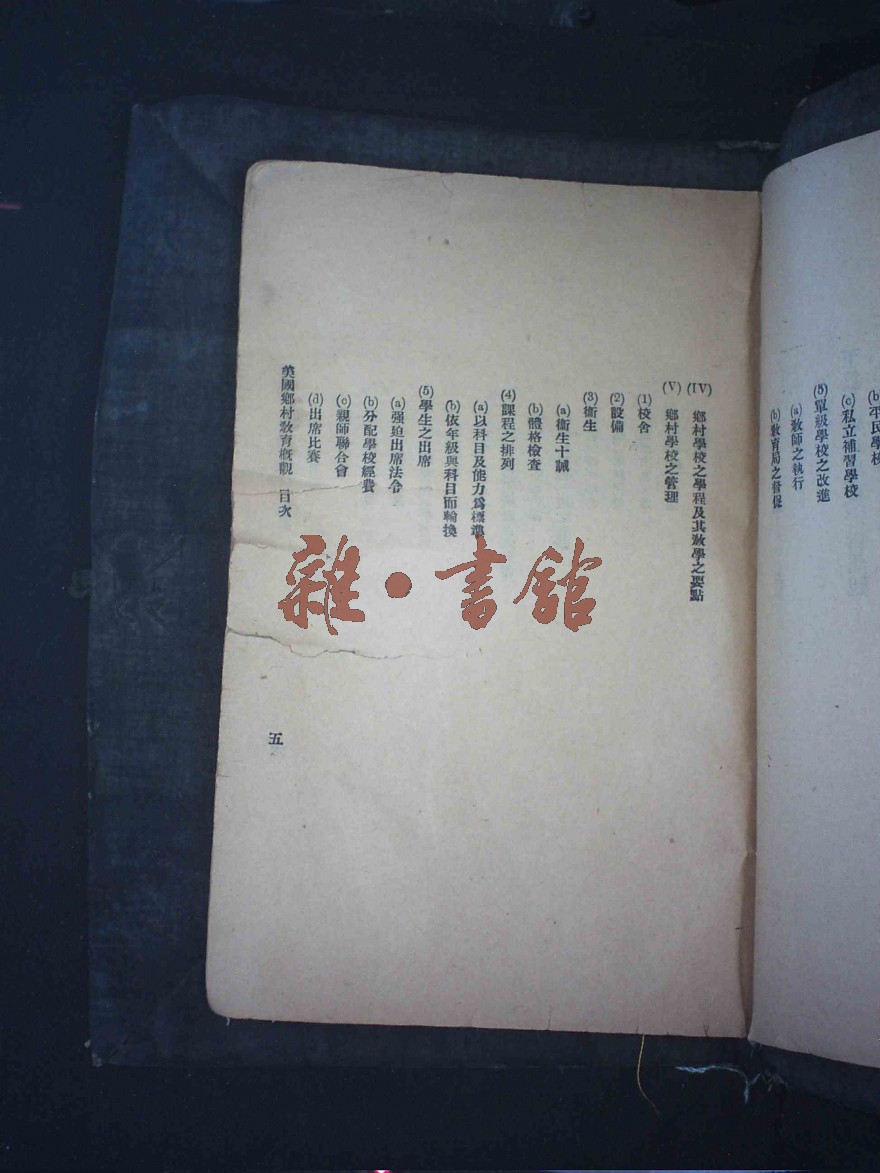 (b)平民學校
(c)私立補習學校
(5)單級學校之改進
(a)敎師之執行
(b)敎育局之督促
(IV) 鄕村學校之學程及其敎學之要點
(V) 鄕村學校之管理
(1)校舍
(2)設備
(3)衞生
(a)衞生十誡
(b)體格檢查
(4)課程之排列
(a)以科目及能力爲標準
(b)依年級與科目而輪換
(5)學生之出席
(a)强迫出席法令
(b)分配學校經費
(c)親師聯合會
(d)出席比賽
美國鄕村敎育槪觀 目次
五
雜·書館